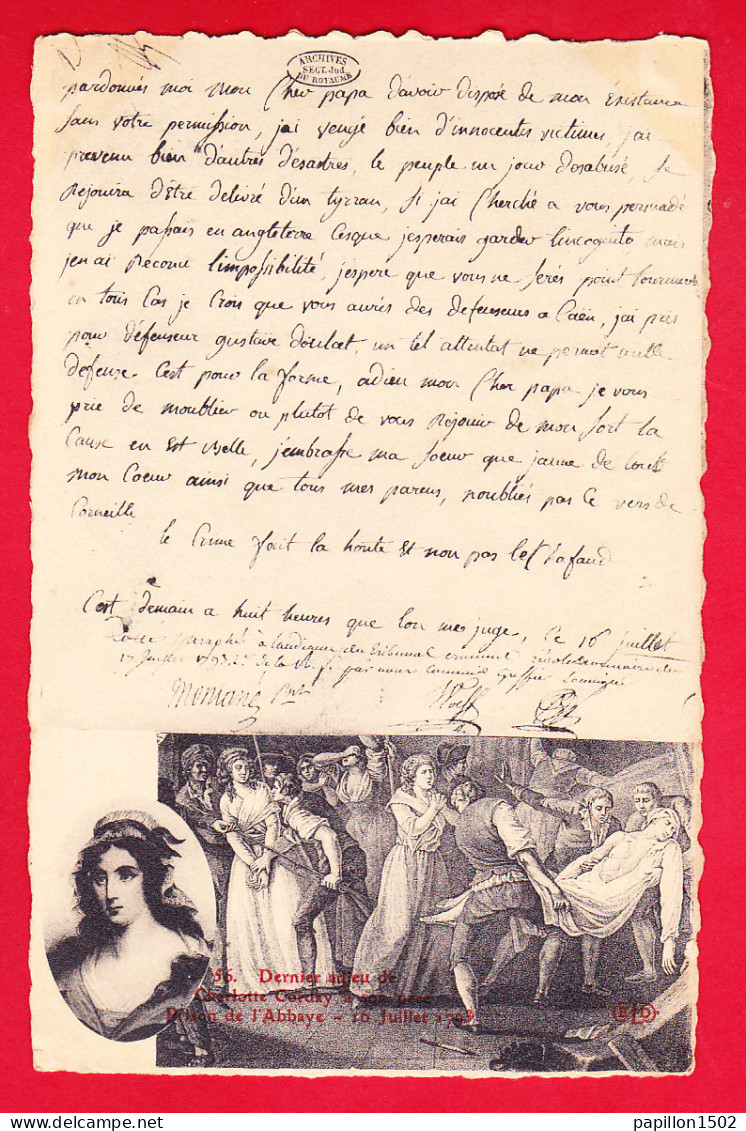 ARCHIVES
SECT. Jud.
DU ROYAUME
pardonnés moi mon Cher papa d'avoir disposé de mon Existance
sans votre permission, j'ai vengé bien d'innocentes victimes, j'ai
prevenu bien d'autres désastres, le peuple un jour désabusé, se
Rejouira d'être delivré d'un tyrran, Si j'ai Cherché a vous persuadé
que je passais en angleterre Cesque jesperais garder lincognito, mais
jen ai Reconu l'impossibilité, jéspere que vous ne serés point tourmenté
en tous Cas je Crois que vous aurés des defenseurs a Caën, j'ai pris
pour défenseur gustave doulcet, un tel attentat ne permet nulle
defense. C'est pour la forme, adieu mon Cher papa je vous
prie de moublier ou plutot de vous Rejouir de mon sort la
Cause en Est Belle, j'embrasse ma soeur que jaime de tout
mon Coeur ainsi que tous mes parens, noubliés pas Ce vers de
Corneille
le Crime fait la honte Et non pas lEchafaud
C'est demain a huit heures que lon me juge, Ce 16 juillet
paraphé à l'audience du tribunal criminel révolutionnaire du
17 juillet 1793, par nous commis greffier soussigné
Montané
Wolff
56. Dernier adieu de
Charlotte Corday à son père
Prison de l'Abbaye - 16 Juillet 1793
ELD
papillon1502